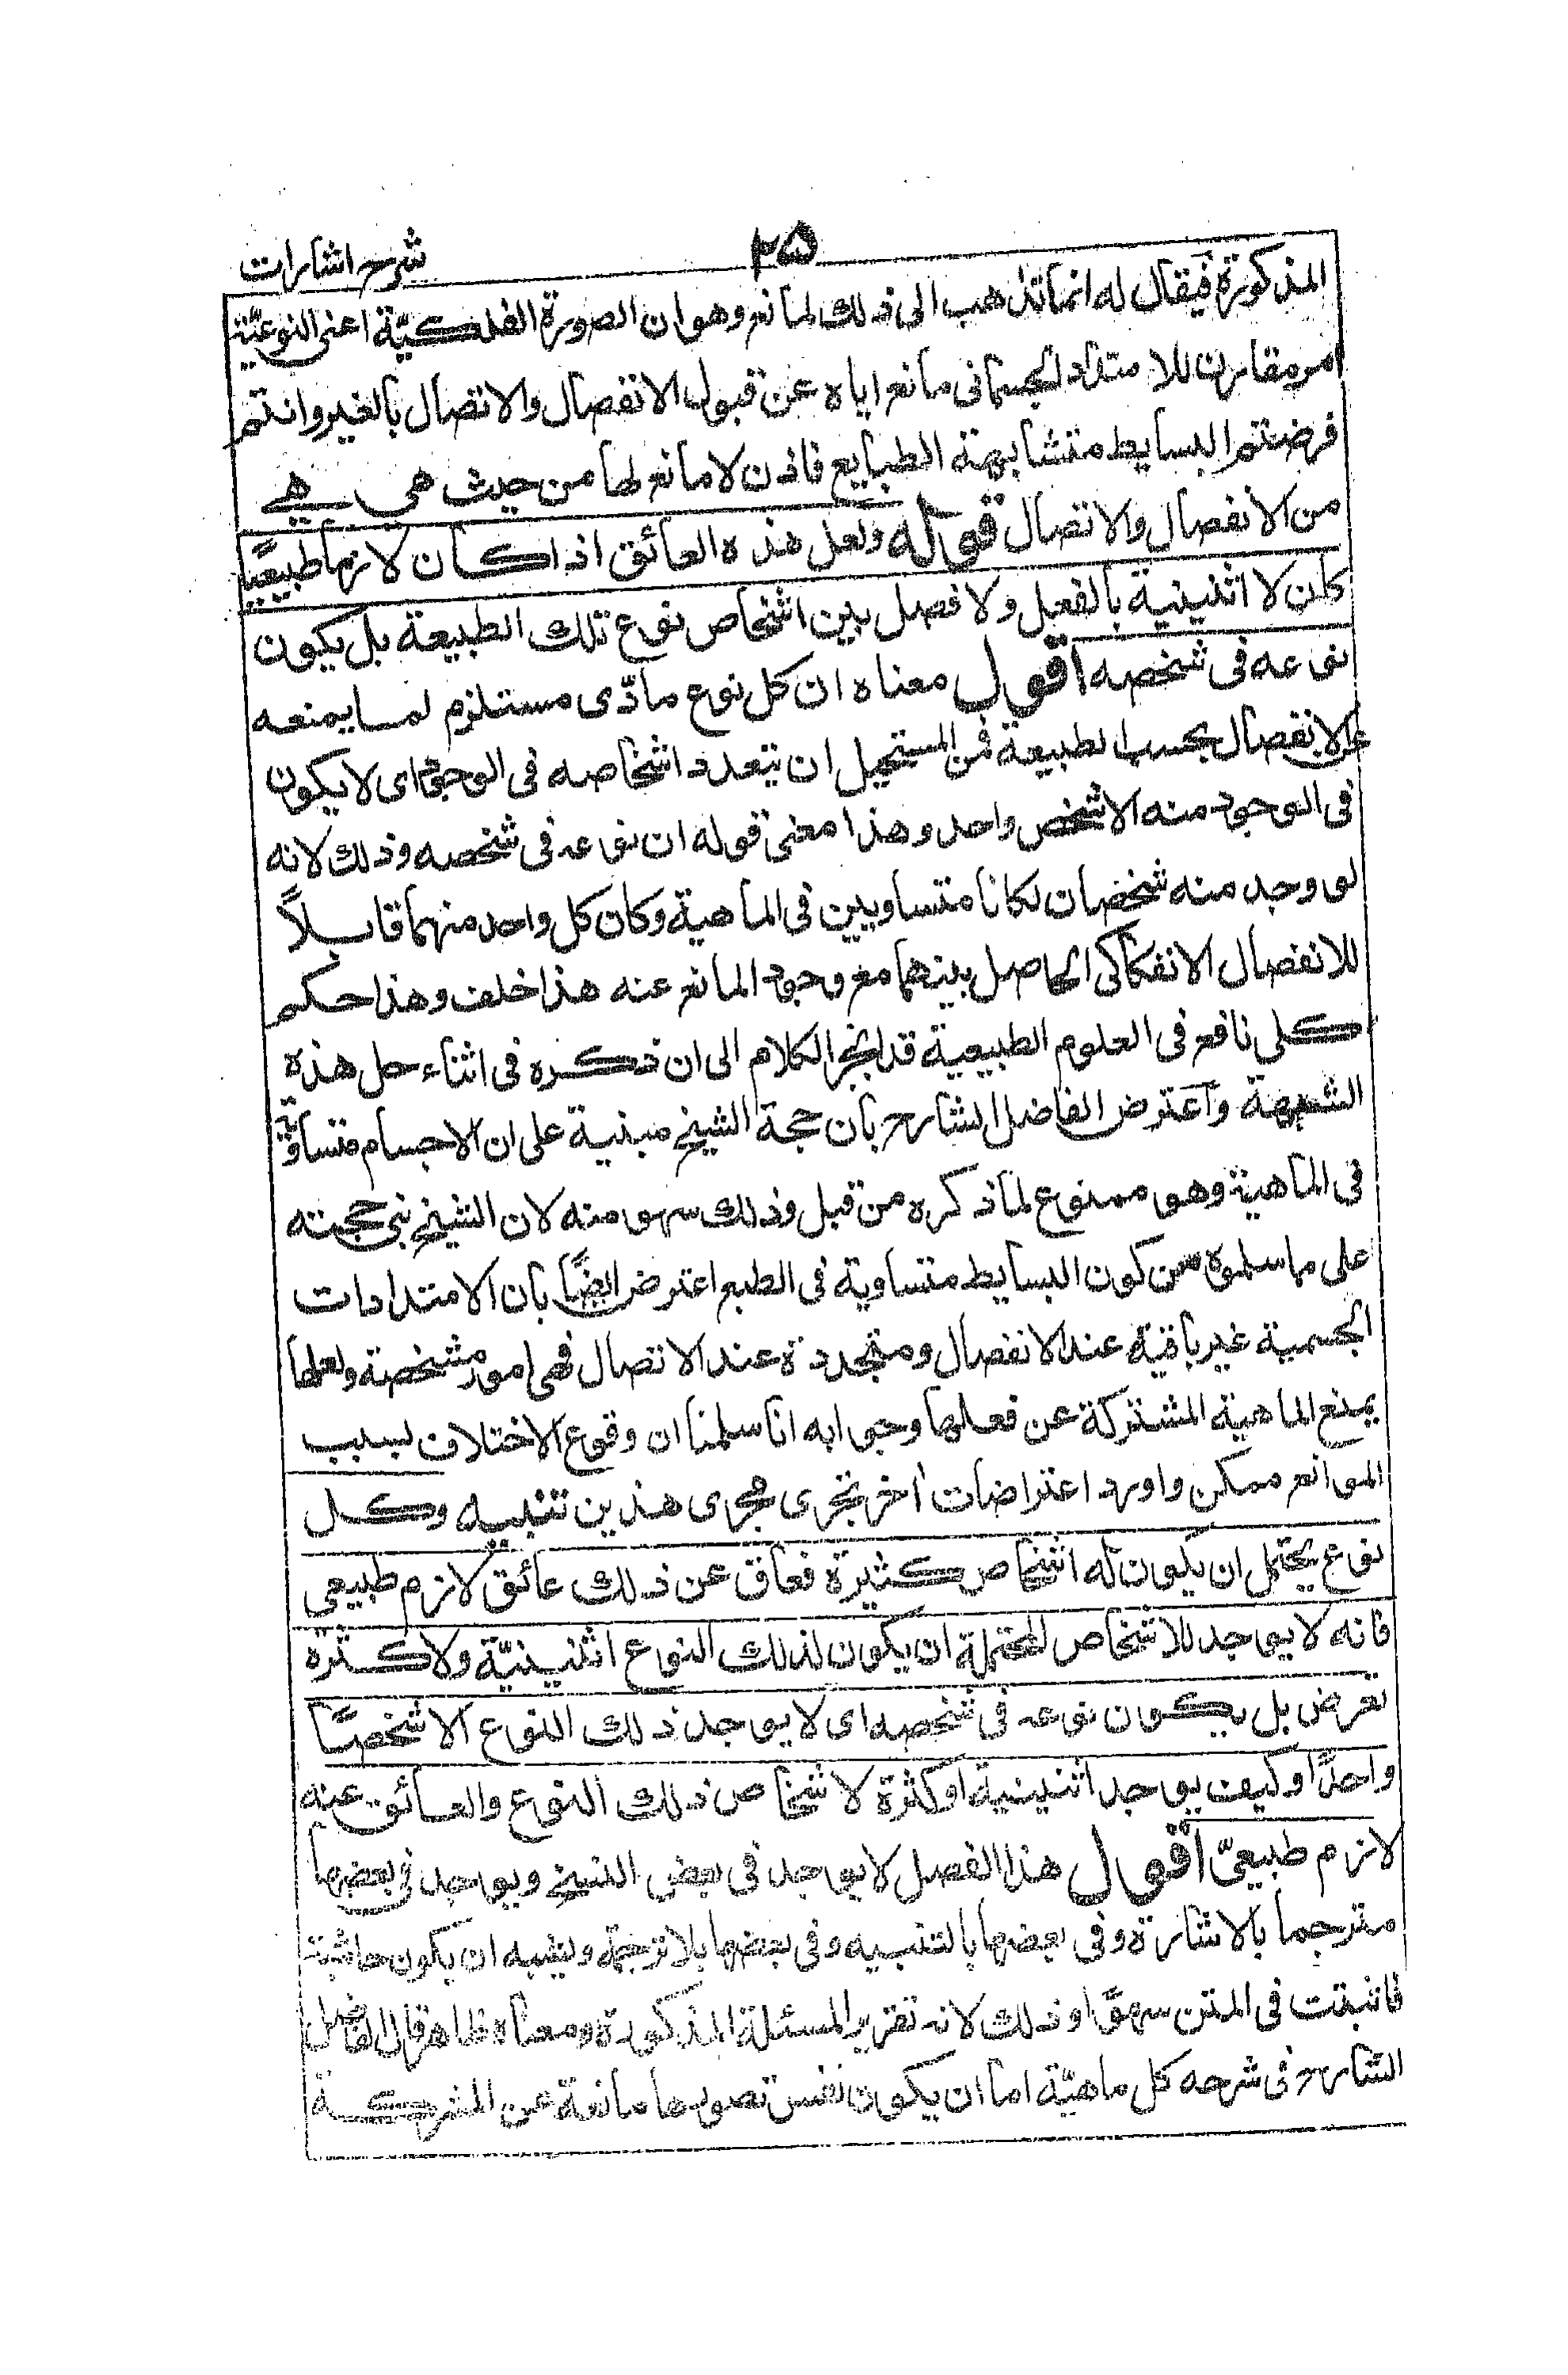 شرح اشارات
۲۵
المذكورة فيقال له انما تذهب الى ذلك لمانع وهو ان الصورة الفلكيّة اعنى النوعيّة
امر مقارن للامتداد الجسمانى مانع اياه عن قبول الانفصال والاتصال بالغير وانتم
فرضتم البسايط متشابهة الطبايع فاذن لا مانع لها من حيث هى هى
من الانفصال والاتصال قوله ولعل هذه العائق اذا كان لازما طبيعيًا
كان لا اثنينية بالفعل ولا فصل بين اشخاص نوع تلك الطبيعة بل يكون
نوعه فى شخصه اقول معناه ان كل نوع مادّى مستلزم لما يمنعه
عن الانفصال بحسب الطبيعة فمن المستحيل ان يتعدد اشخاصه فى الوجود اى لا يكون
فى الوجود منه الا شخص واحد وهذا معنى قوله ان نوعه فى شخصه وذلك لانه
لو وجد منه شخصان لكانا متساويين فى الماهية وكان كل واحد منهما قابلاً
للانفصال الانفكاكى الحاصل بينهما مع وجود المانع عنه هذا خلف وهذا حكم
كلى نافع فى العلوم الطبيعية قد انجر الكلام الى ان ذكره فى اثناء حل هذه
الشبهة وآعترض الفاضل الشارح بان حجة الشيخ مبنية على ان الاجسام متساوية
فى الماهية وهو ممنوع لما ذكره من قبل وذلك سهو منه لان الشيخ بنى حجته
على ما سلموه من كون البسايط متساوية فى الطبع اعترض ايضًا بان الامتدادات
الجسمية غير باقية عند الانفصال ومتجددة عند الاتصال فهى امور مشخصة ولعلها
يمنع الماهية المشتركة عن فعلها وجوابه انا سلمنا ان وقوع الاختلاف لسبب
الموانع ممكن واورد اعتراضات اخر تجرى مجرى هذين تنبيه وكل
نوع يحتمل ان يكون له اشخاص كثيرة فعاق عن ذلك عائق لازم طبيعى
فانه لا يوجد للاشخاص المحتملة ان يكون لذلك النوع اثنينيّة ولا كثرة
تعرض بل يكون نوعه فى شخصه اى لا يوجد ذلك النوع الا شخصًا
واحدًا وكيف يوجد اثنينية او كثرة لاشخاص ذلك النوع والعائق عنه
لازم طبيعىّ اقول هذا الفصل لا يوجد فى بعض النسخ ويوجد فى بعضها
مترجما بالاشارة وفى بعضها بالتنبيه وفى بعضها بلا ترجمة ويشبه ان يكون حاشية
فاثبتت فى المتن سهوًا وذلك لانه تقرير المسئلة المذكورة ومعناه ظاهر قال الفاضل
الشارح فى شرحه كل ماهيّة اما ان يكون نفس تصورها مانعة عن الشركة